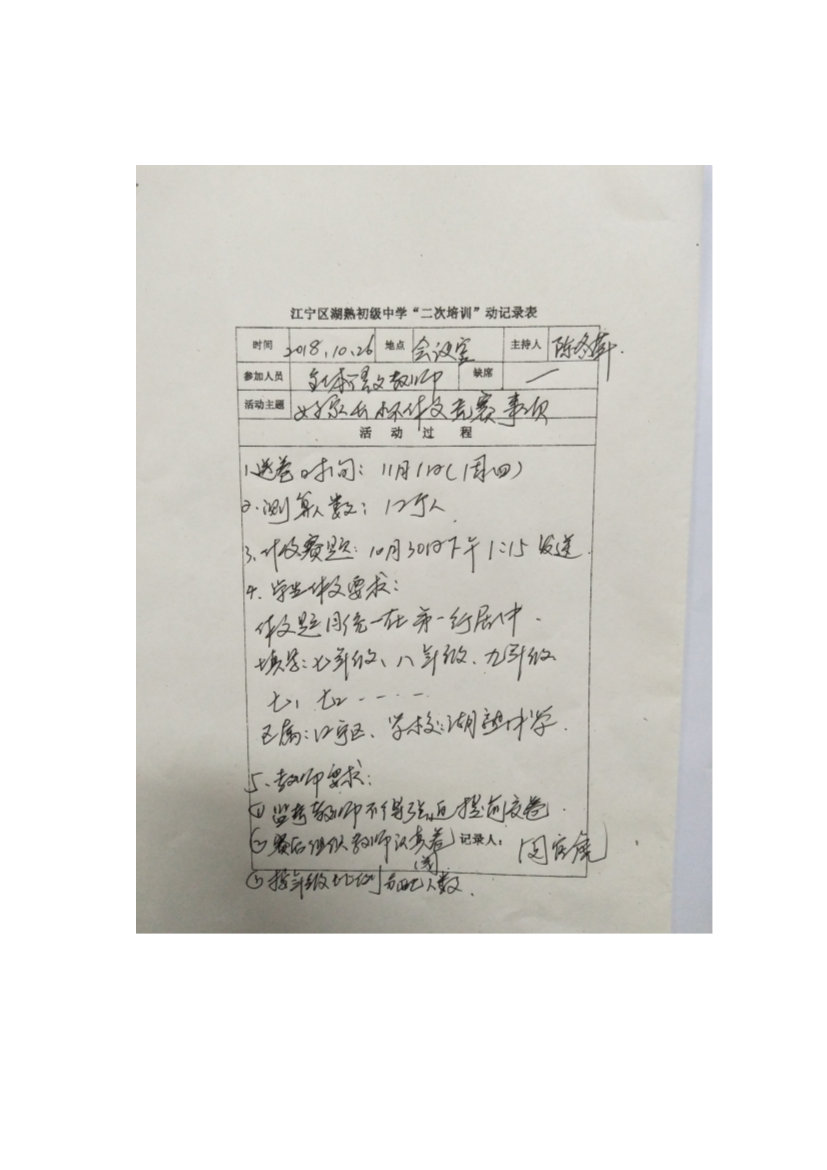 江宁区湖熟初级中学“二次培训”动记录表
时间 2018.10.26 地点 会议室 主持人 陈冬
参加人员 全体语文教师 缺席 一
活动主题 好家长杯作文竞赛事项
活动过程
1.送卷时间：11月1日(周四)
2.测算人数：12万人
3.作文赛题：10月30日下午1:15发送.
4.学生作文要求：
作文题目统一在第一行居中.
填写：七年级、八年级、九年级
七1 七2 - - - -
区属：江宁区、学校：湖熟中学.
5.教师要求：
①监考教师不得强迫提前交卷.
②赛后组织教师认真阅卷 记录人：
③按年级比例分配人数.